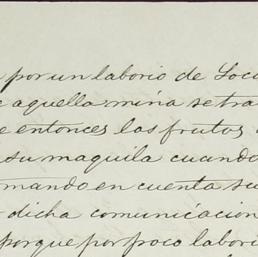 por un laborio de Soca
aquella mina se tra
entonces los frutos
su maquila cuando
mando en cuenta su
dicha comunicacion
porque por poco labori